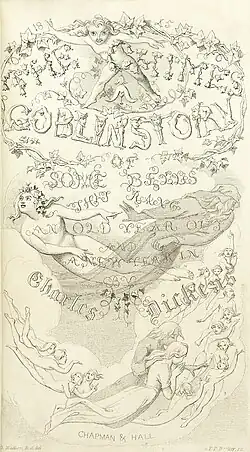 THE CHIMES
A
GOBLIN STORY
OF
SOME BELLS
THAT RANG
AN OLD YEAR OUT
AND
A NEW YEAR IN
BY
Charles Dickens
CHAPMAN & HALL